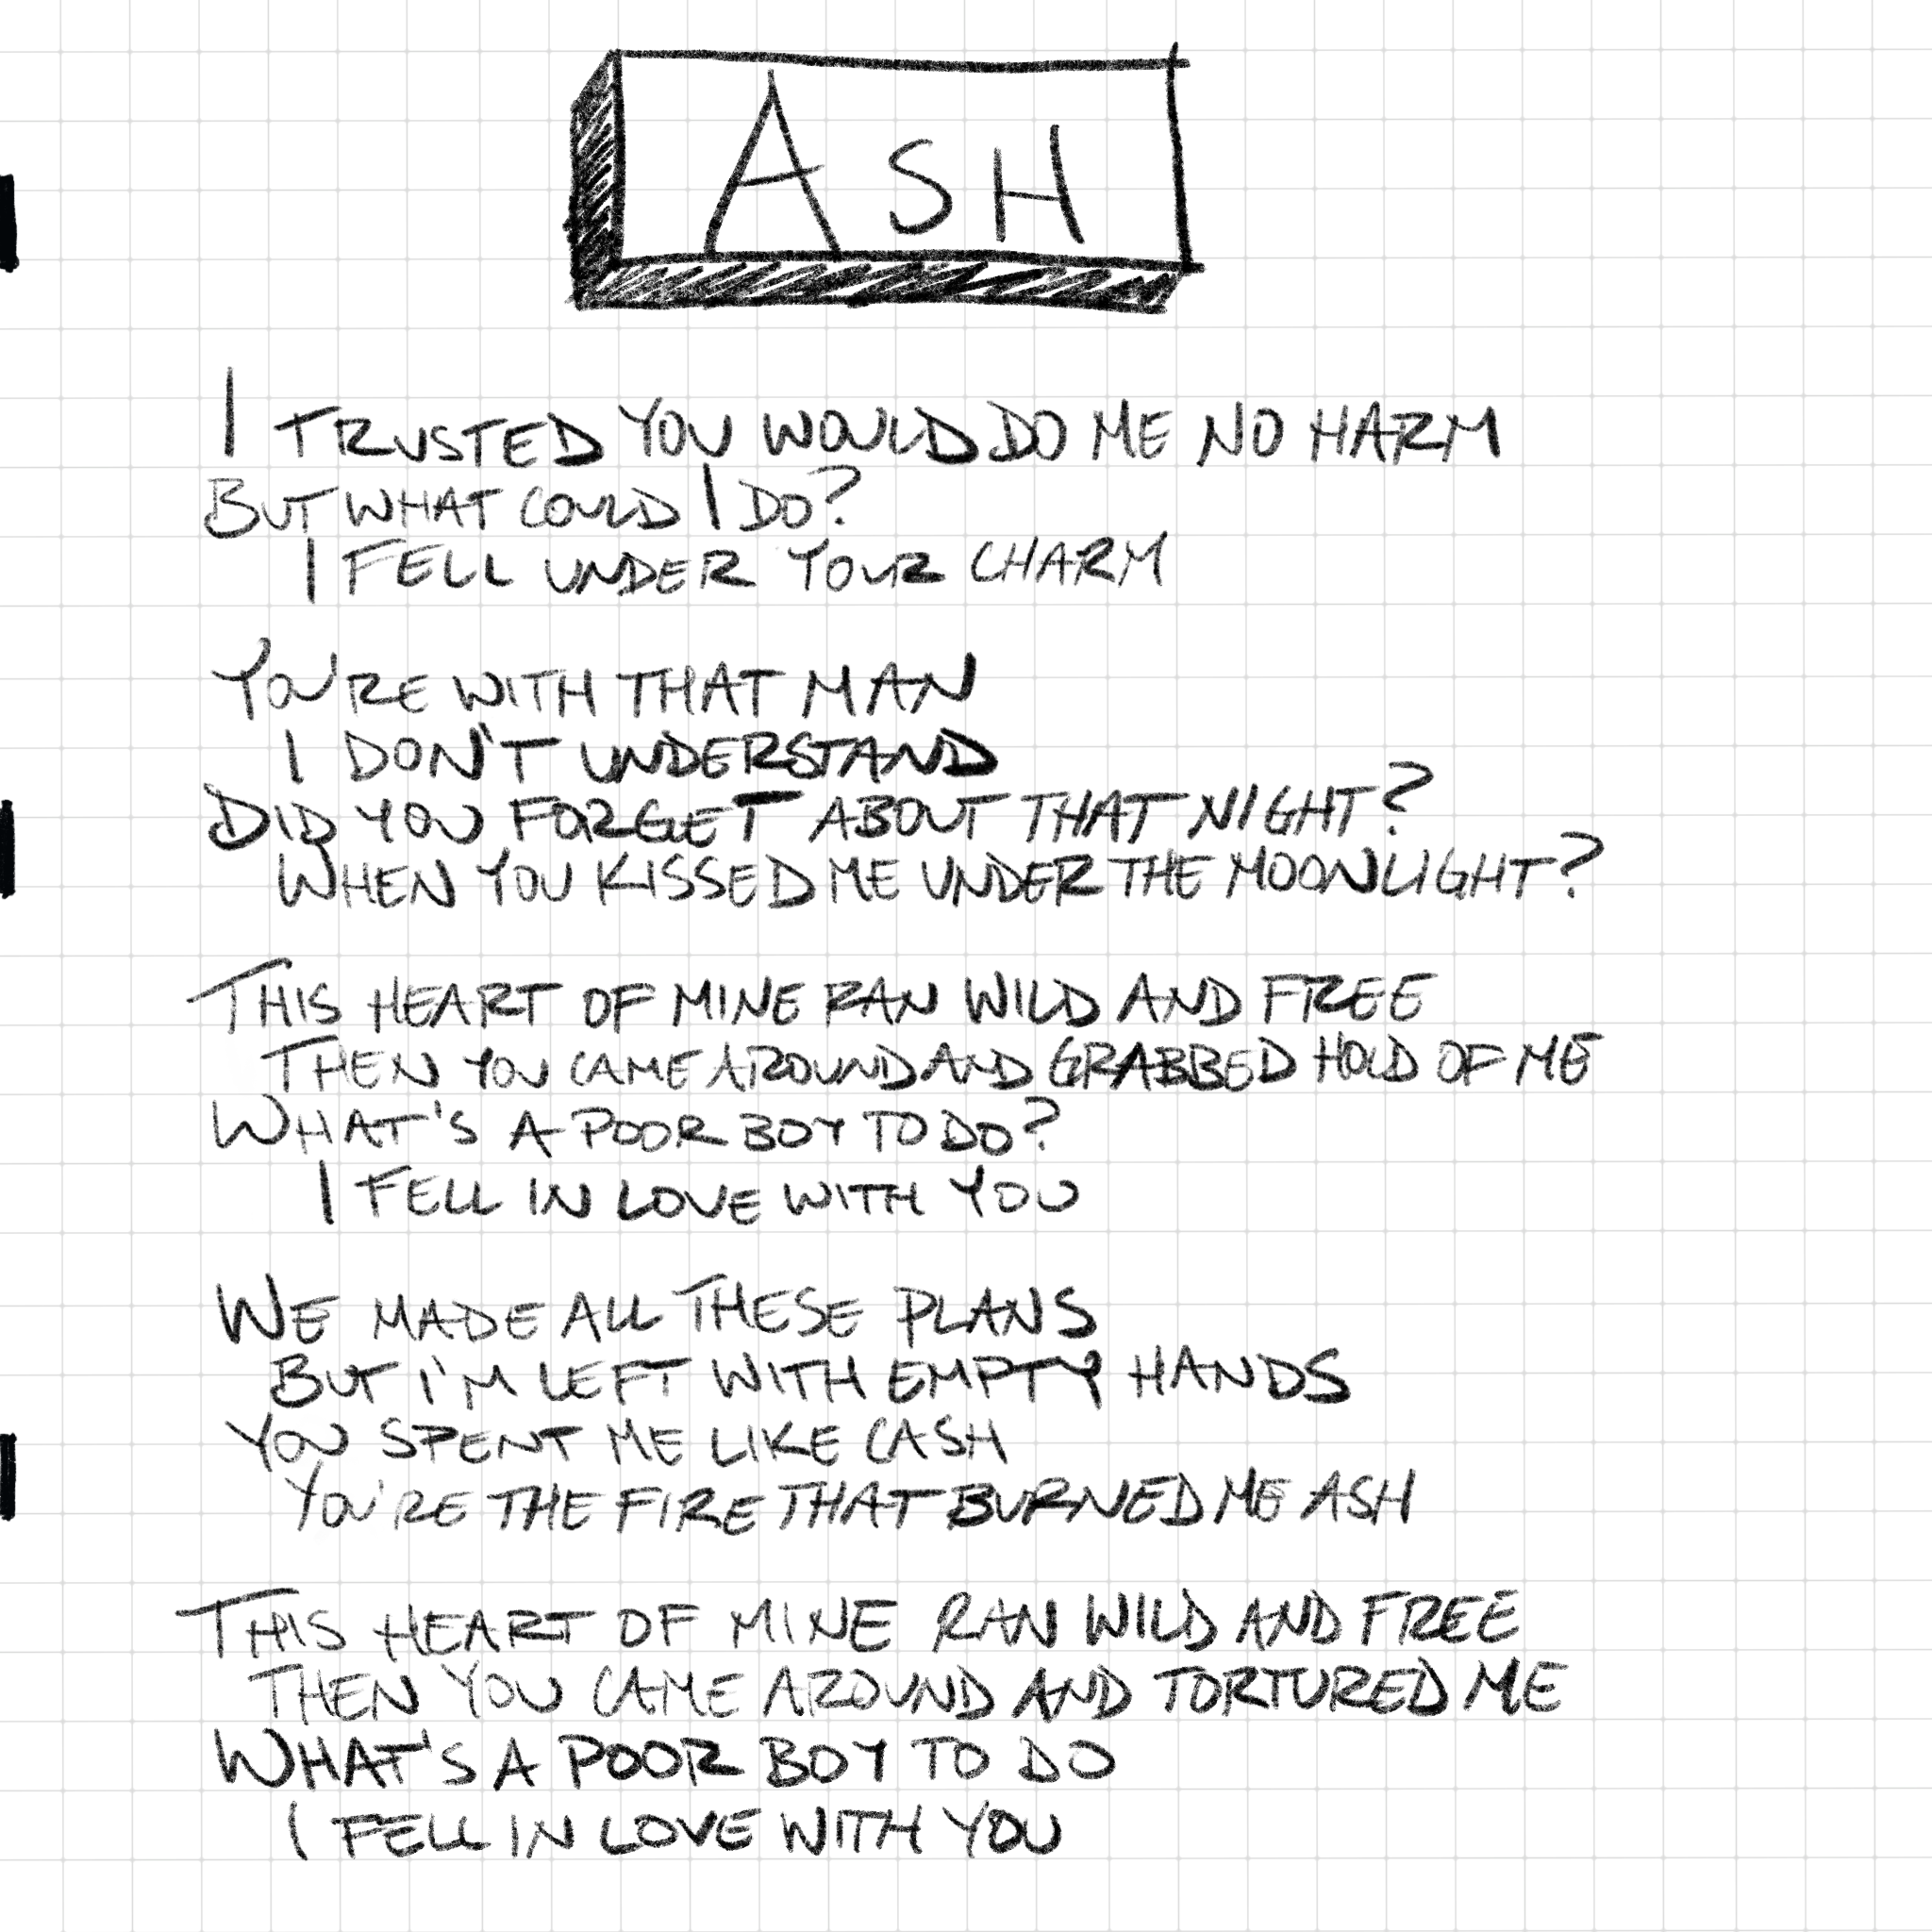 ASH
I TRUSTED YOU WOULD DO ME NO HARM
BUT WHAT COULD I DO?
I FELL UNDER YOUR CHARM
YOU'RE WITH THAT MAN
I DON'T UNDERSTAND
DID YOU FORGET ABOUT THAT NIGHT?
WHEN YOU KISSED ME UNDER THE MOONLIGHT?
THIS HEART OF MINE RAN WILD AND FREE
THEN YOU CAME AROUND AND GRABBED HOLD OF ME
WHAT'S A POOR BOY TO DO?
I FELL IN LOVE WITH YOU
WE MADE ALL THESE PLANS
BUT I'M LEFT WITH EMPTY HANDS
YOU SPENT ME LIKE CASH
YOU'RE THE FIRE THAT BURNED ME ASH
THIS HEART OF MINE RAN WILD AND FREE
THEN YOU CAME AROUND AND TORTURED ME
WHAT'S A POOR BOY TO DO
I FELL IN LOVE WITH YOU